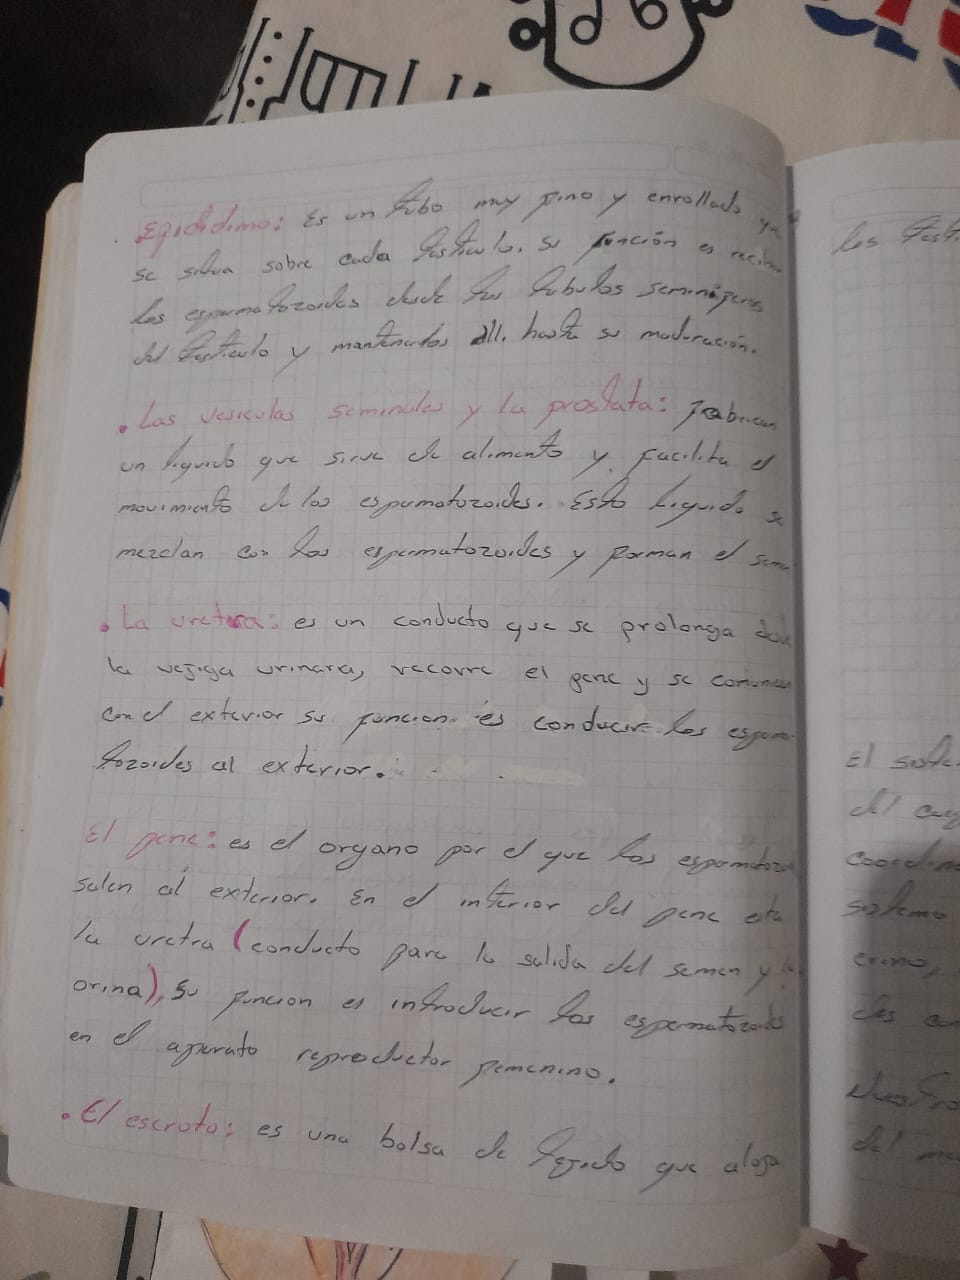 Epididimo: Es un tubo muy fino y enrollado que
se situa sobre cada testiculo. su función es recibir
los espermatozoides desde los tubulos seminíferos
del testiculo y mantenerlos alli hasta su maduración.
. Las vesiculas seminales y la prostata: Fabrican
un liquido que sirve de alimento y facilita el
movimiento de los espermatozoides. Esto liquido se
mezclan con los espermatozoides y forman el semen
. La uretra: es un conducto que se prolonga desde
la vejiga urinara, recorre el pene y se comunica
con el exterior su funcion es conducir los esperma
tozoides al exterior.
El pene: es el organo por el que los espermatozoi
salen al exterior. En el interior del pene esta
la uretra (conducto para la salida del semen y la
orina), su funcion es introducir los espermatozoides
en el aparato reproductor femenino.
. El escroto: es una bolsa de tejido que aloja
los test
El siste
del cuer
coordina
sistema
del me